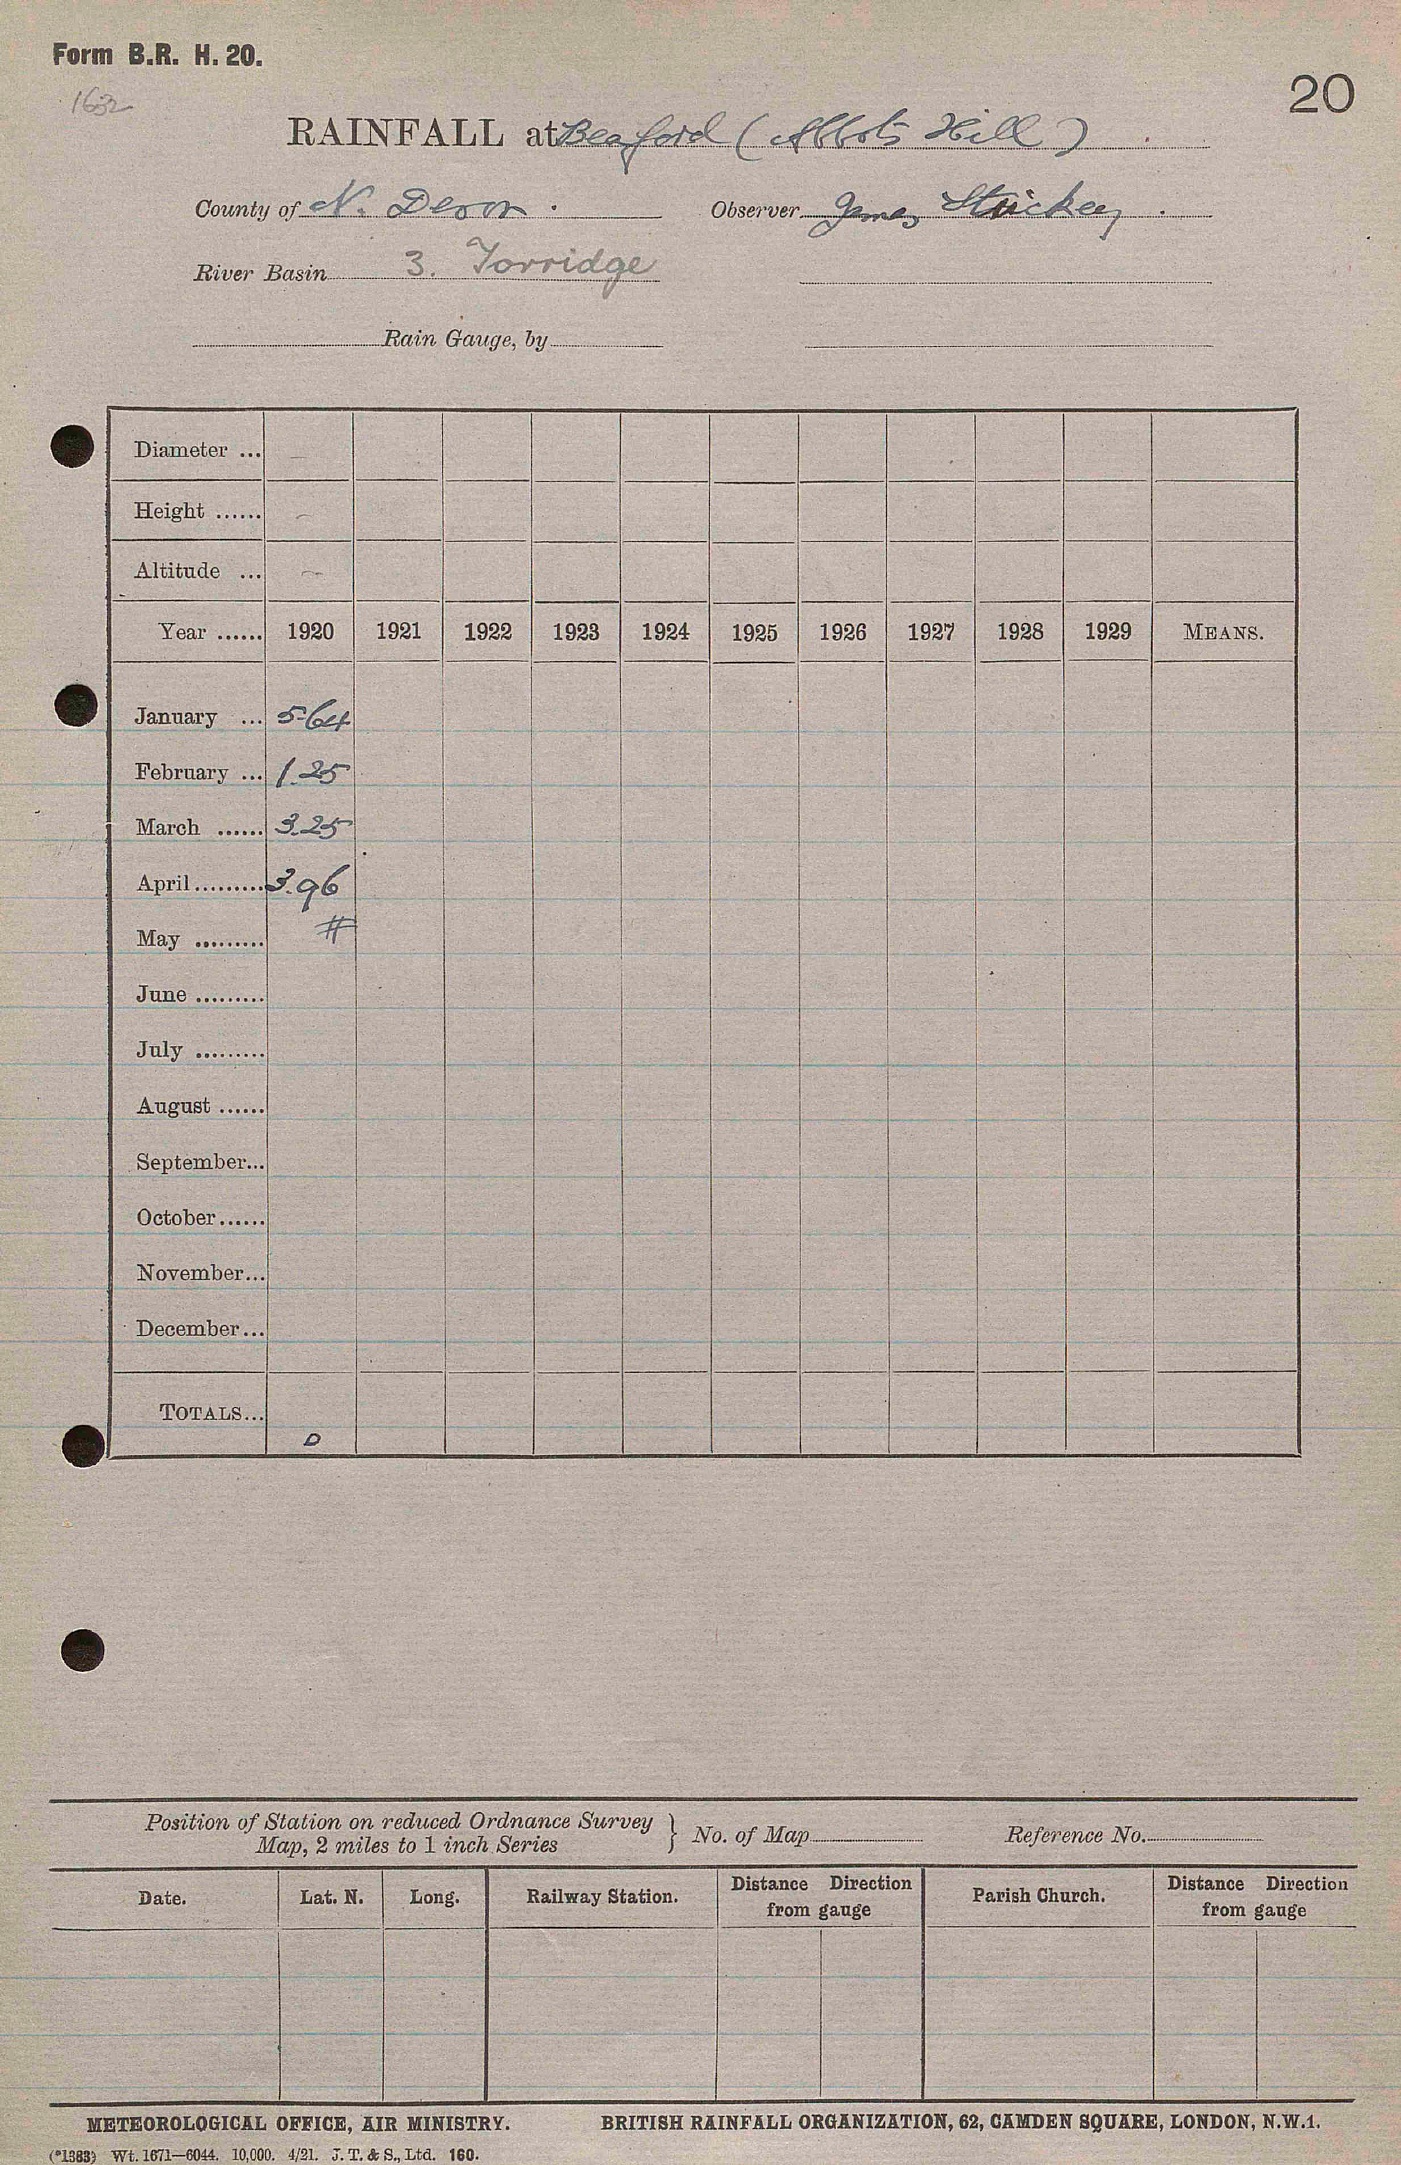 Form B.R. H. 20.
1632
20
RAINFALL at Beaford (Abbots Hill)
County of N. Devon. Observer James Stuckey.
River Basin 3. Torridge
Rain Gauge, by
Diameter ... –
Height ...... –
Altitude ... –
Year ...... 1920 1921 1922 1923 1924 1925 1926 1927 1928 1929 MEANS.
January ... 5.64
February ... 1.25
March ...... 3.25
April ......... 3.96
May ......... #
June .........
July .........
August ......
September...
October......
November...
December...
TOTALS...
D
Position of Station on reduced Ordnance Survey
Map, 2 miles to 1 inch Series } No. of Map Reference No.
Date. Lat. N. Long. Railway Station. Distance Direction from gauge Parish Church. Distance Direction from gauge
METEOROLOGICAL OFFICE, AIR MINISTRY. BRITISH RAINFALL ORGANIZATION, 62, CAMDEN SQUARE, LONDON, N.W.1.
(*1383) Wt. 1671—6044. 10,000. 4/21. J. T. & S., Ltd. 160.